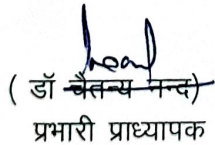 ( डॉ चैतन्य नन्द)
प्रभारी प्राध्यापक